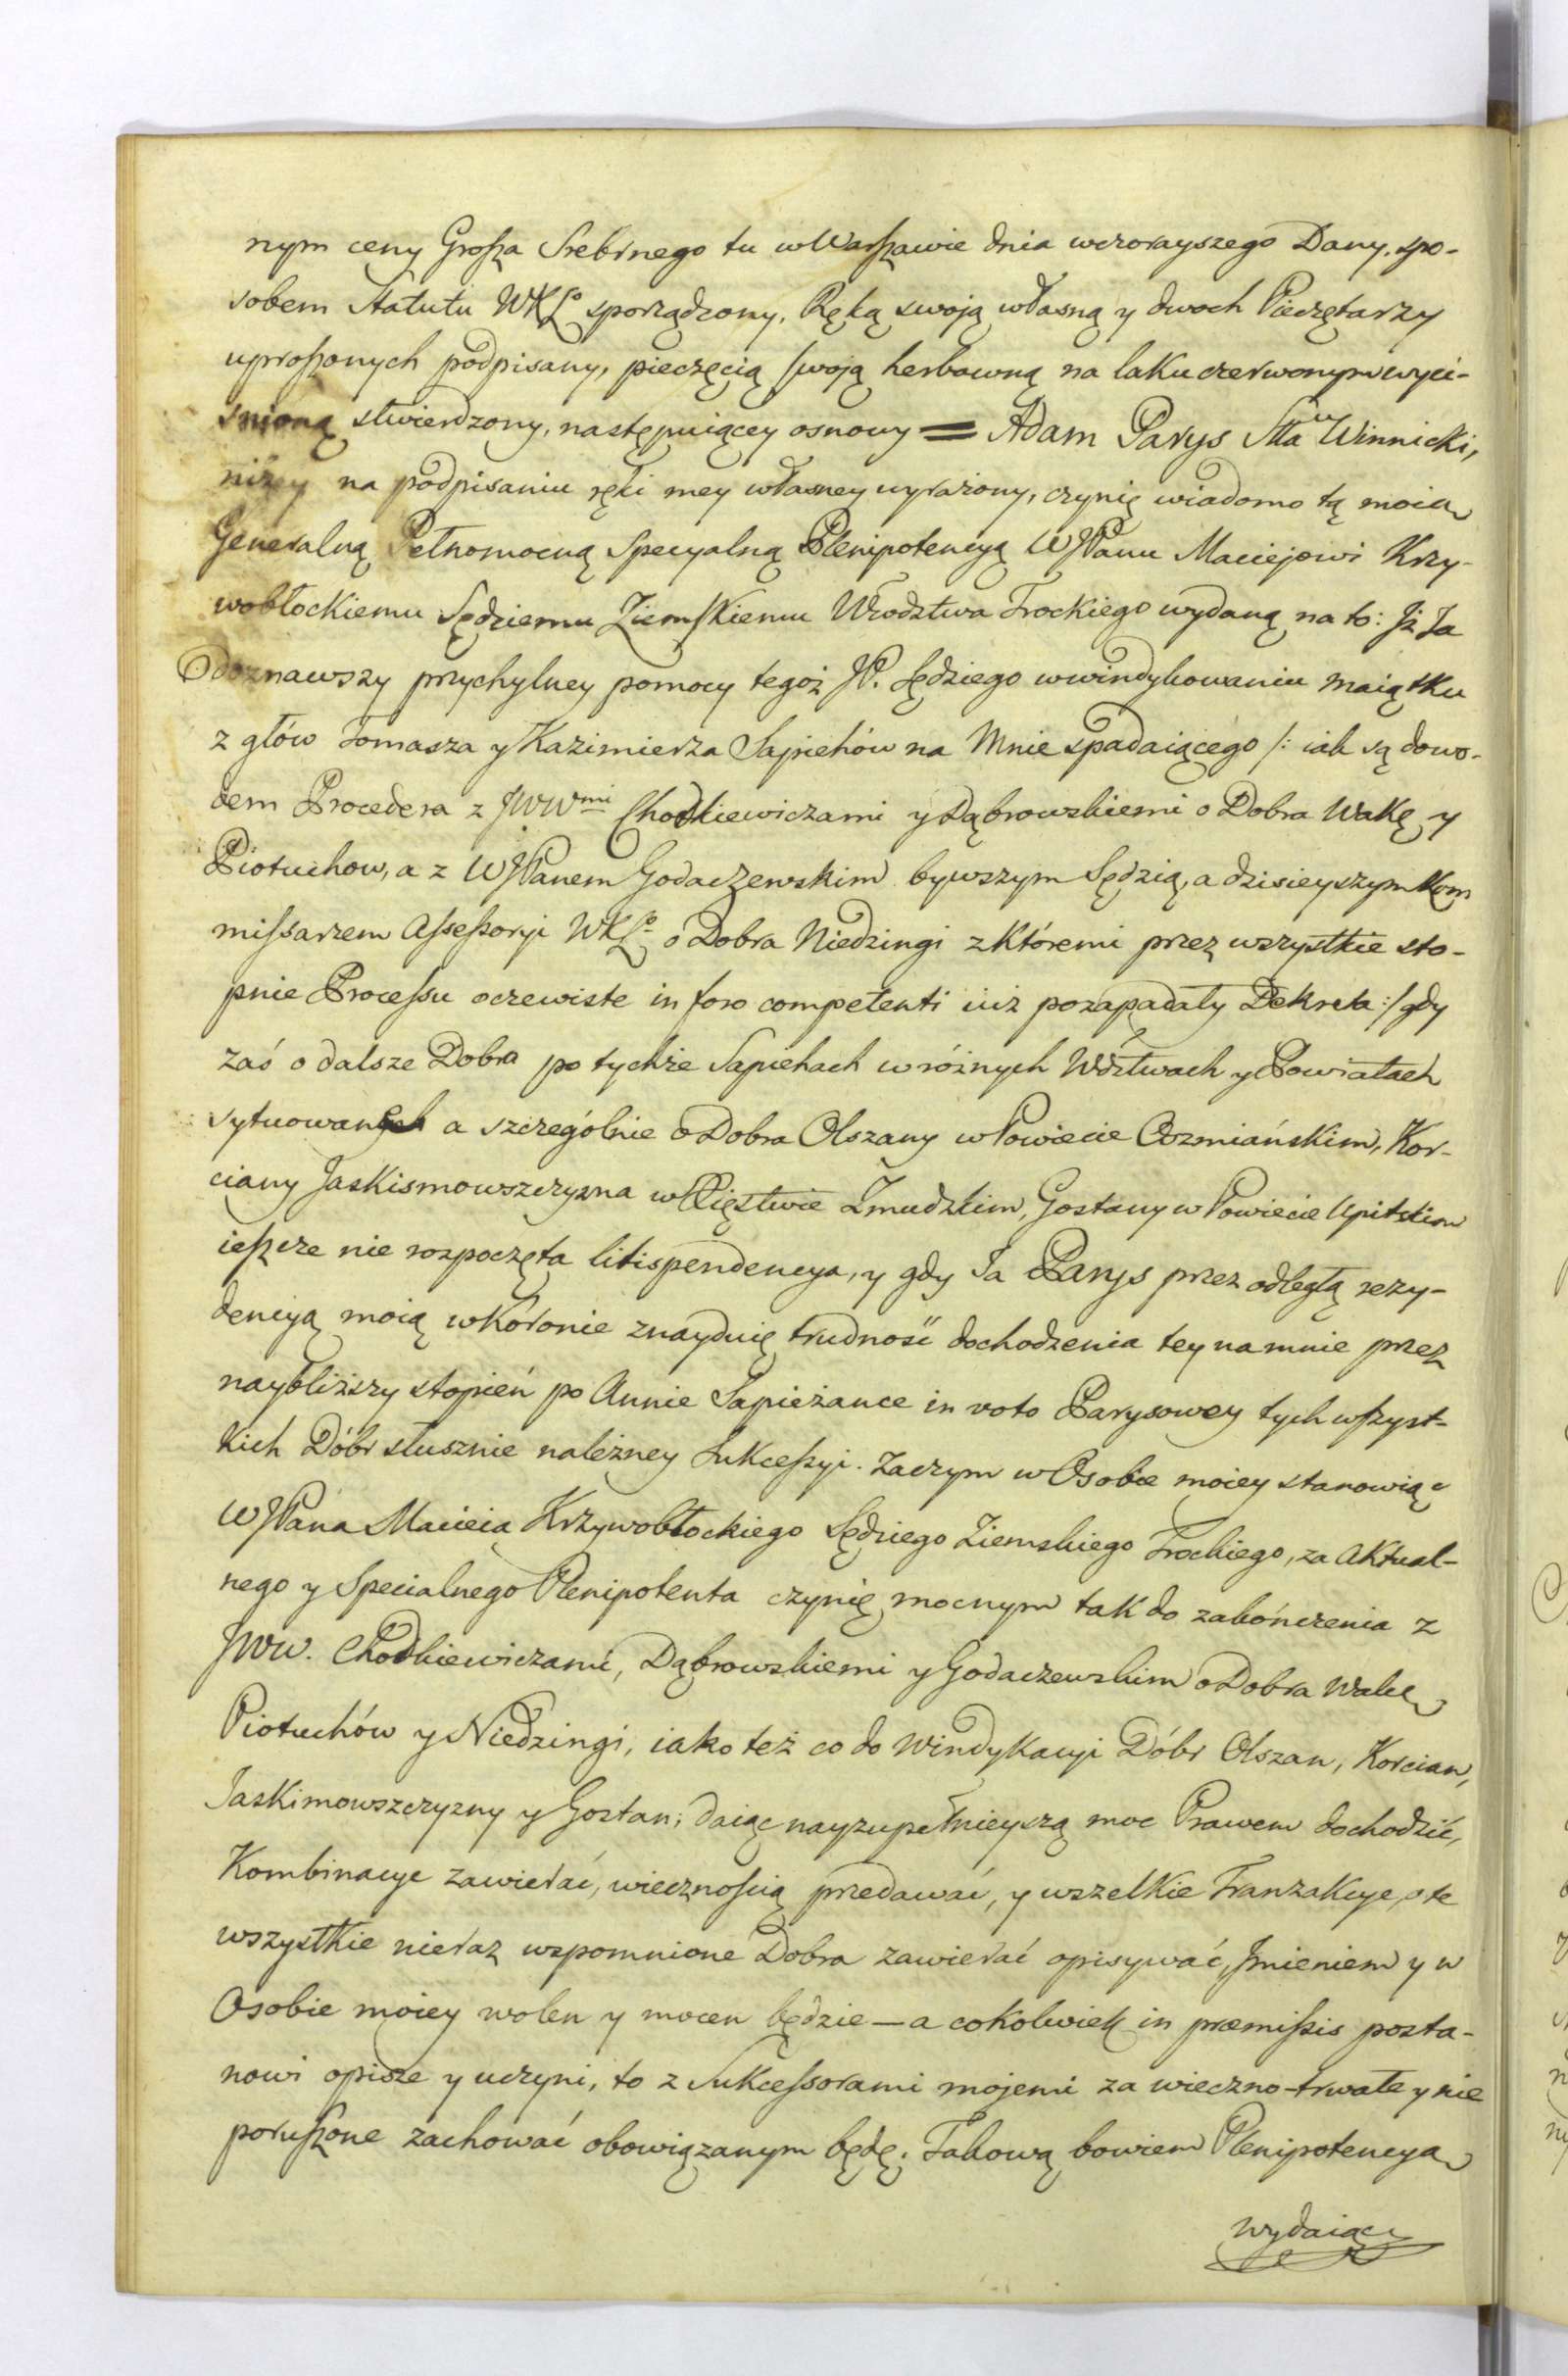 nym ceny Groſza Srebrnego tu w Warſzawie dnia wczorayszego Dany, spo-
sobem Statutu WXLo sporządzony, Ręką swoją własną y dwoch Pieczętarzy
uproſzonych podpisany, pieczęcią ſwoją herbowną na laku czerwonym wyci-
śnioną stwierdzony, następuiącey osnowy = Adam Parys Stta Winnicki,
niżey na podpisaniu ręki mey własney wyrażony, czynię wiadomo tą moią
Generalną Pełnomocną Specyalną Plenipotencyą WJPanu Maciejowi Krzy-
wobłockiemu Sędziemu Ziemſkiemu Wwodztwa Trockiego wydaną na to: Jż Ja
doznawszy przychylney pomocy tegoż JP. Sędziego w windykowaniu maiątku
z głów Tomasza y Kazimierza Sapiehów na Mnie spadaiącego /: iak są dowo-
dem Procedera z JWWmi Chodkiewiczami y Dąbrowskiemi o Dobra Wakę y
Piotuchow, a z WJPanem Godaczewskim bywszym Sędzią, a dzisieyszym Kom
miſsarzem Aſseſsoryi WXLo o Dobra Niedzingi z Któremi przez wszystkie sto-
pnie Proceſsu oczewiste in foro competenti iuż pozapadały Dekreta :/ gdy
zaś o dalsze Dobra po tychże Sapiehach w różnych Wdztwach y Powiatach
sytuowanych a szczególnie o Dobra Olszany w Powiecie Oszmiańskim, Kor-
ciany Jaskismowszczyzna w Xięstwie Zmudzkim, Gostany w Powiecie Upitskim
ieſzcze nie rozpoczęta litispendencya, y gdy Ja Parys przez odległą rezy-
dencyą moią w Koronie znayduię trudność dochodzenia tey na mnie przez
naybliższy stopień po Annie Sapieżance in voto Parysowey tych wſzyst-
kich Dóbr słusznie należney Sukceſsyi. Zaczym w Osobie moiey stanowiąc
WJPana Macieia Krzywobłockiego Sędziego Ziemskiego Trockiego, za Aktual-
nego y Specialnego Plenipotenta czynię mocnym tak do zakończenia z
JWW. Chodkiewiczami, Dąbrowskiemi y Godaczewskim o Dobra Wakę
Piotuchów y Niedzingi, iako też co do Windykacyi Dóbr Olszan, Korcian,
Jaskimowszczyzny y Gostan; daiąc nayzupełnieyszą moc Prawem dochodzić,
Kombinacye zawierać, wiecznoſcią przedawać, y wszelkie Tranzakcye, o te
wszystkie nieraz wspomnione Dobra zawierać opisywać, Jmieniem y w
Osobie moiey wolen y mocen będzie — a cokolwiek in præmiſsis posta-
nowi opisze y uczyni, to z Sukceſsorami mojemi za wieczno-trwałe y nie
poruſzone zachować obowiązanym będę. Takową bowiem Plenipotencya
wydaiąc